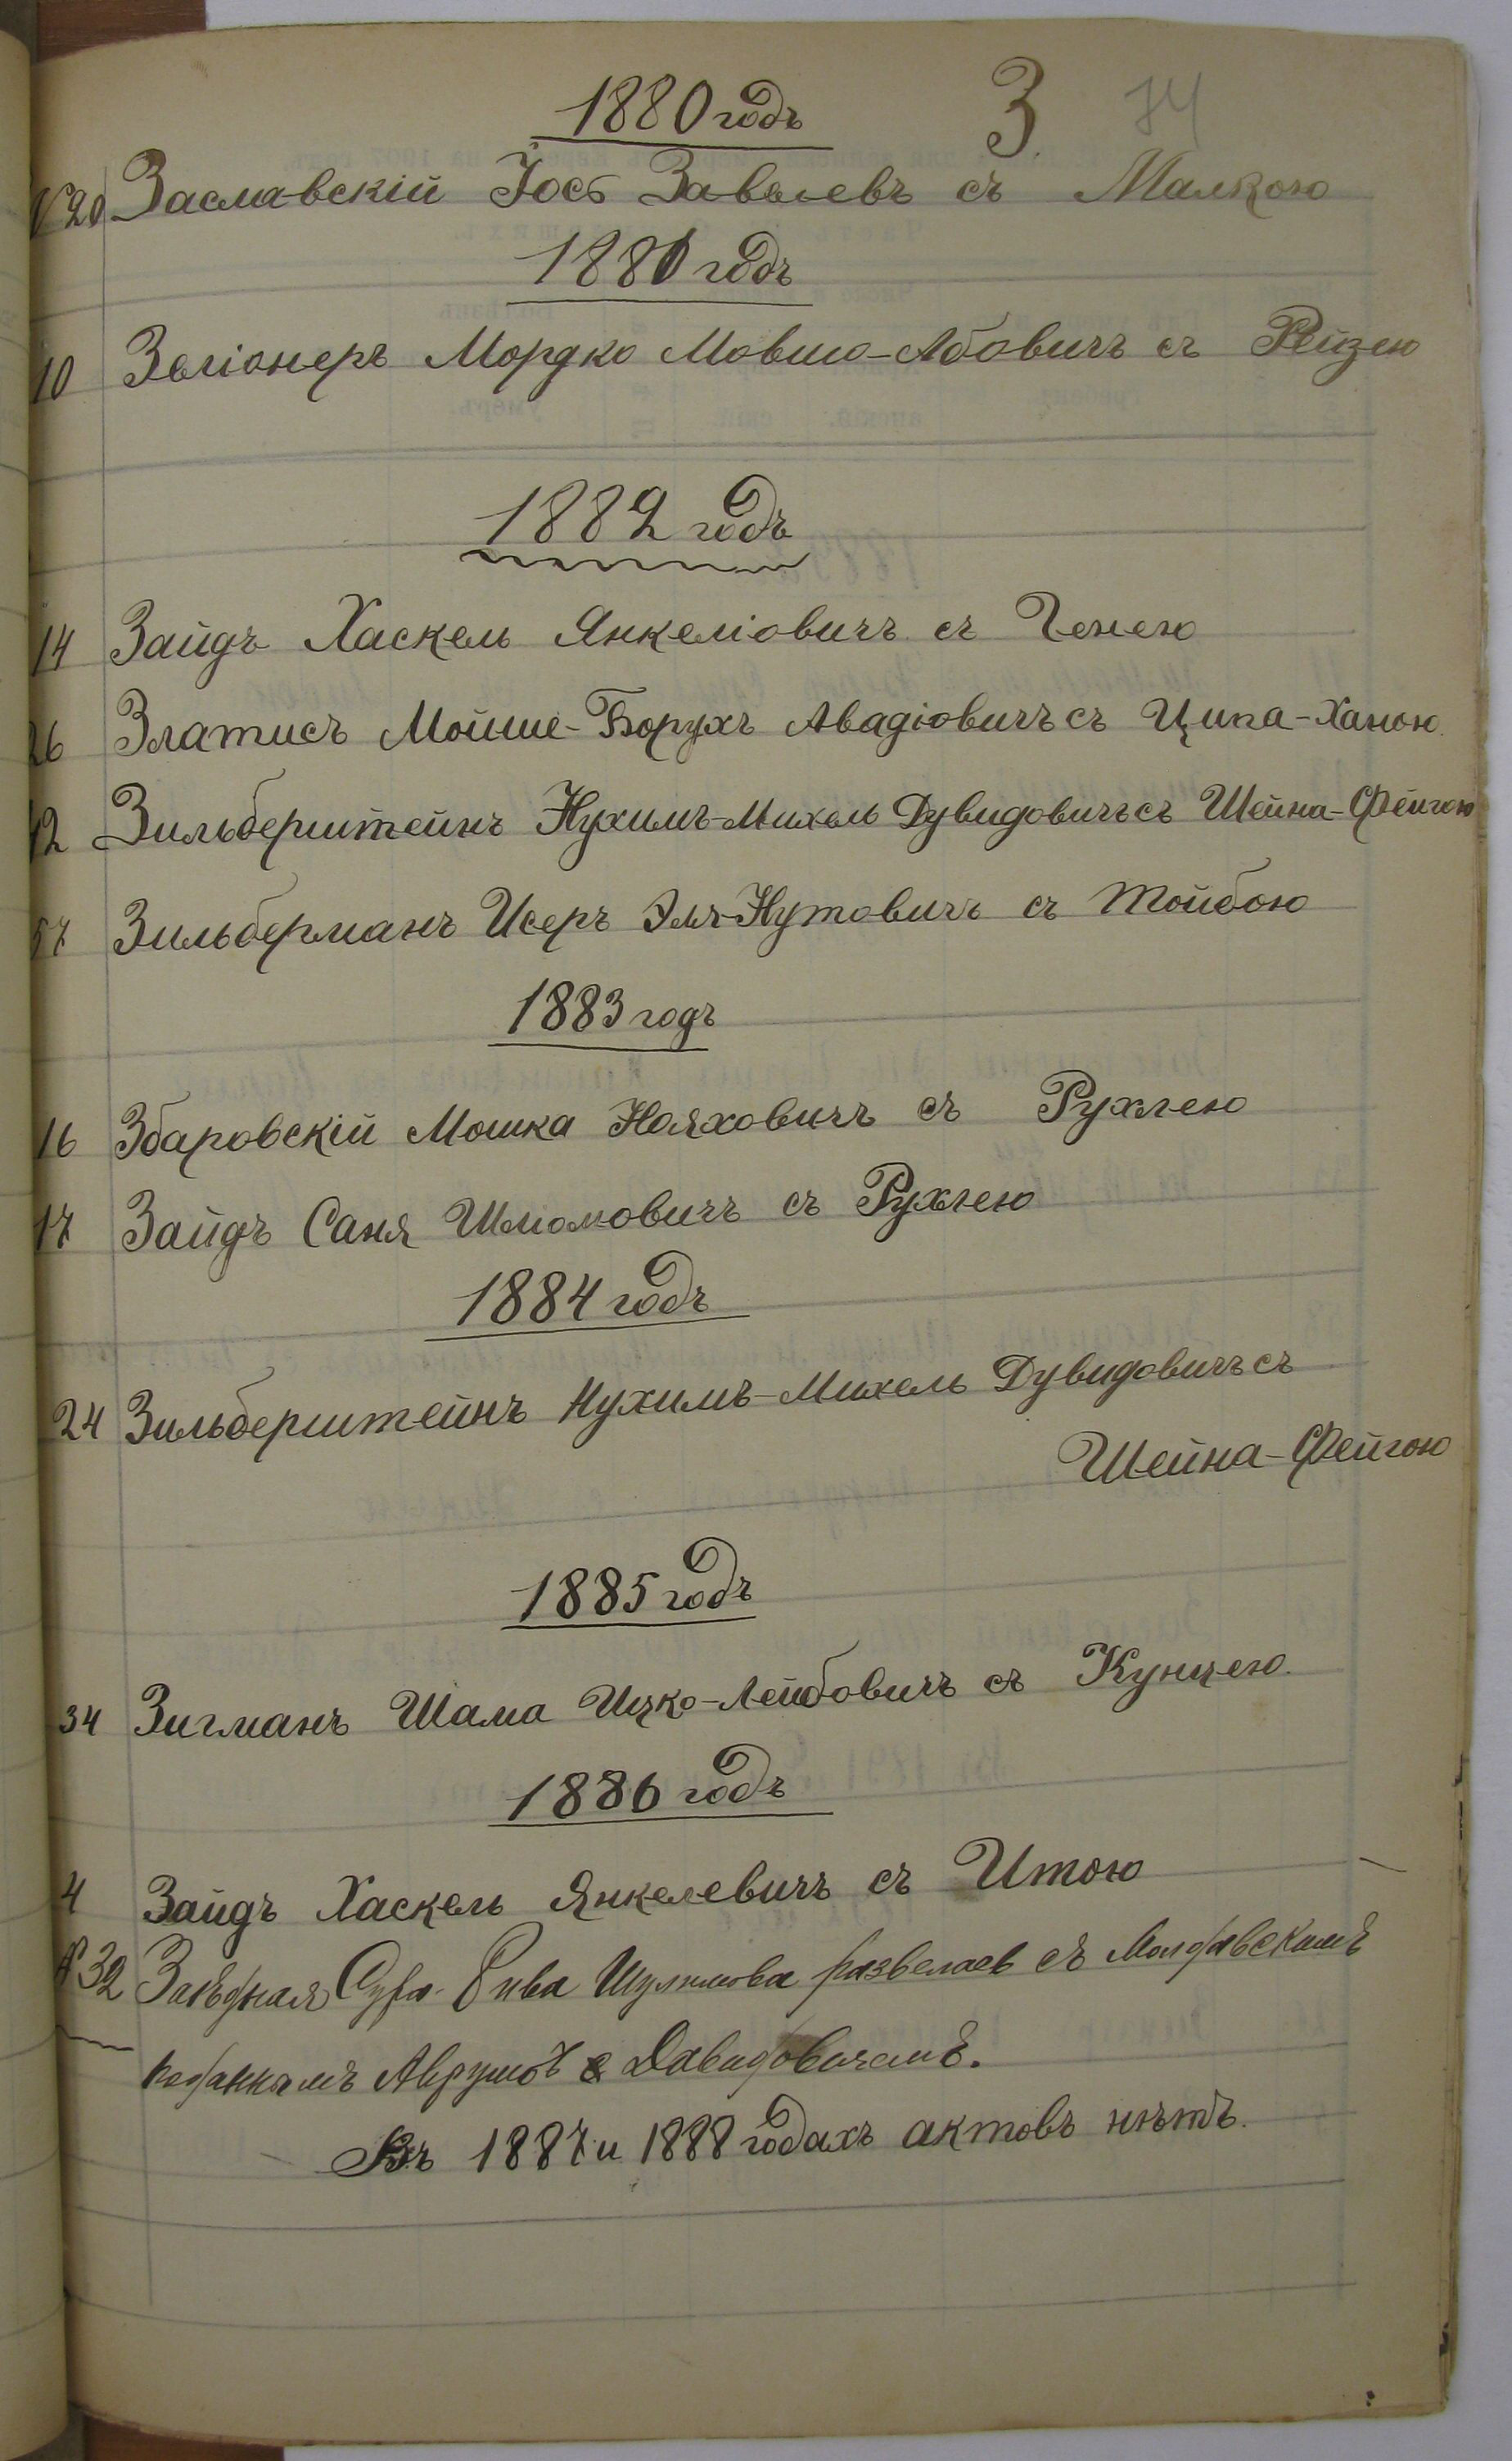 1880 годъ З. 74
№20 Заславскій Іось Завелевъ съ Малкою
1881 годъ
10 Зеліонеръ Мордко Мовшо-Абовичъ съ Рейзею
1882 годъ
14 Зайдъ Хаскель Янкеліовичъ съ Генею
26 Златисъ Мойше-Борухъ Авадіовичъ съ Ципа-Ханою.
42 Зильберштейнъ Нухимъ-Михель Дувидовичъ съ Шейна-Фейгою
57 Зильберманъ Исеръ Эля-Нутовичъ съ Тойбою
1883 годъ
16 Збаровскій Мошка Нояховичъ съ Рухлею
17 Зайдъ Саня Шліомовичъ съ Рухлею
1884 годъ
24 Зильберштейнъ Нухимъ-Михель Дувидовичъ съ
Шейна-Фейгою
1885 годъ
34 Зигманъ Шама Ицко-Лейбовичъ съ Кунцею.
1886 годъ
4 Зайдъ Хаскель Янкелевичъ съ Итою
№32 Сура-Рива Шулимова съ
Аврумъ Давидовичемъ.
Въ 1887 и 1888 годахъ актовъ нѣтъ.